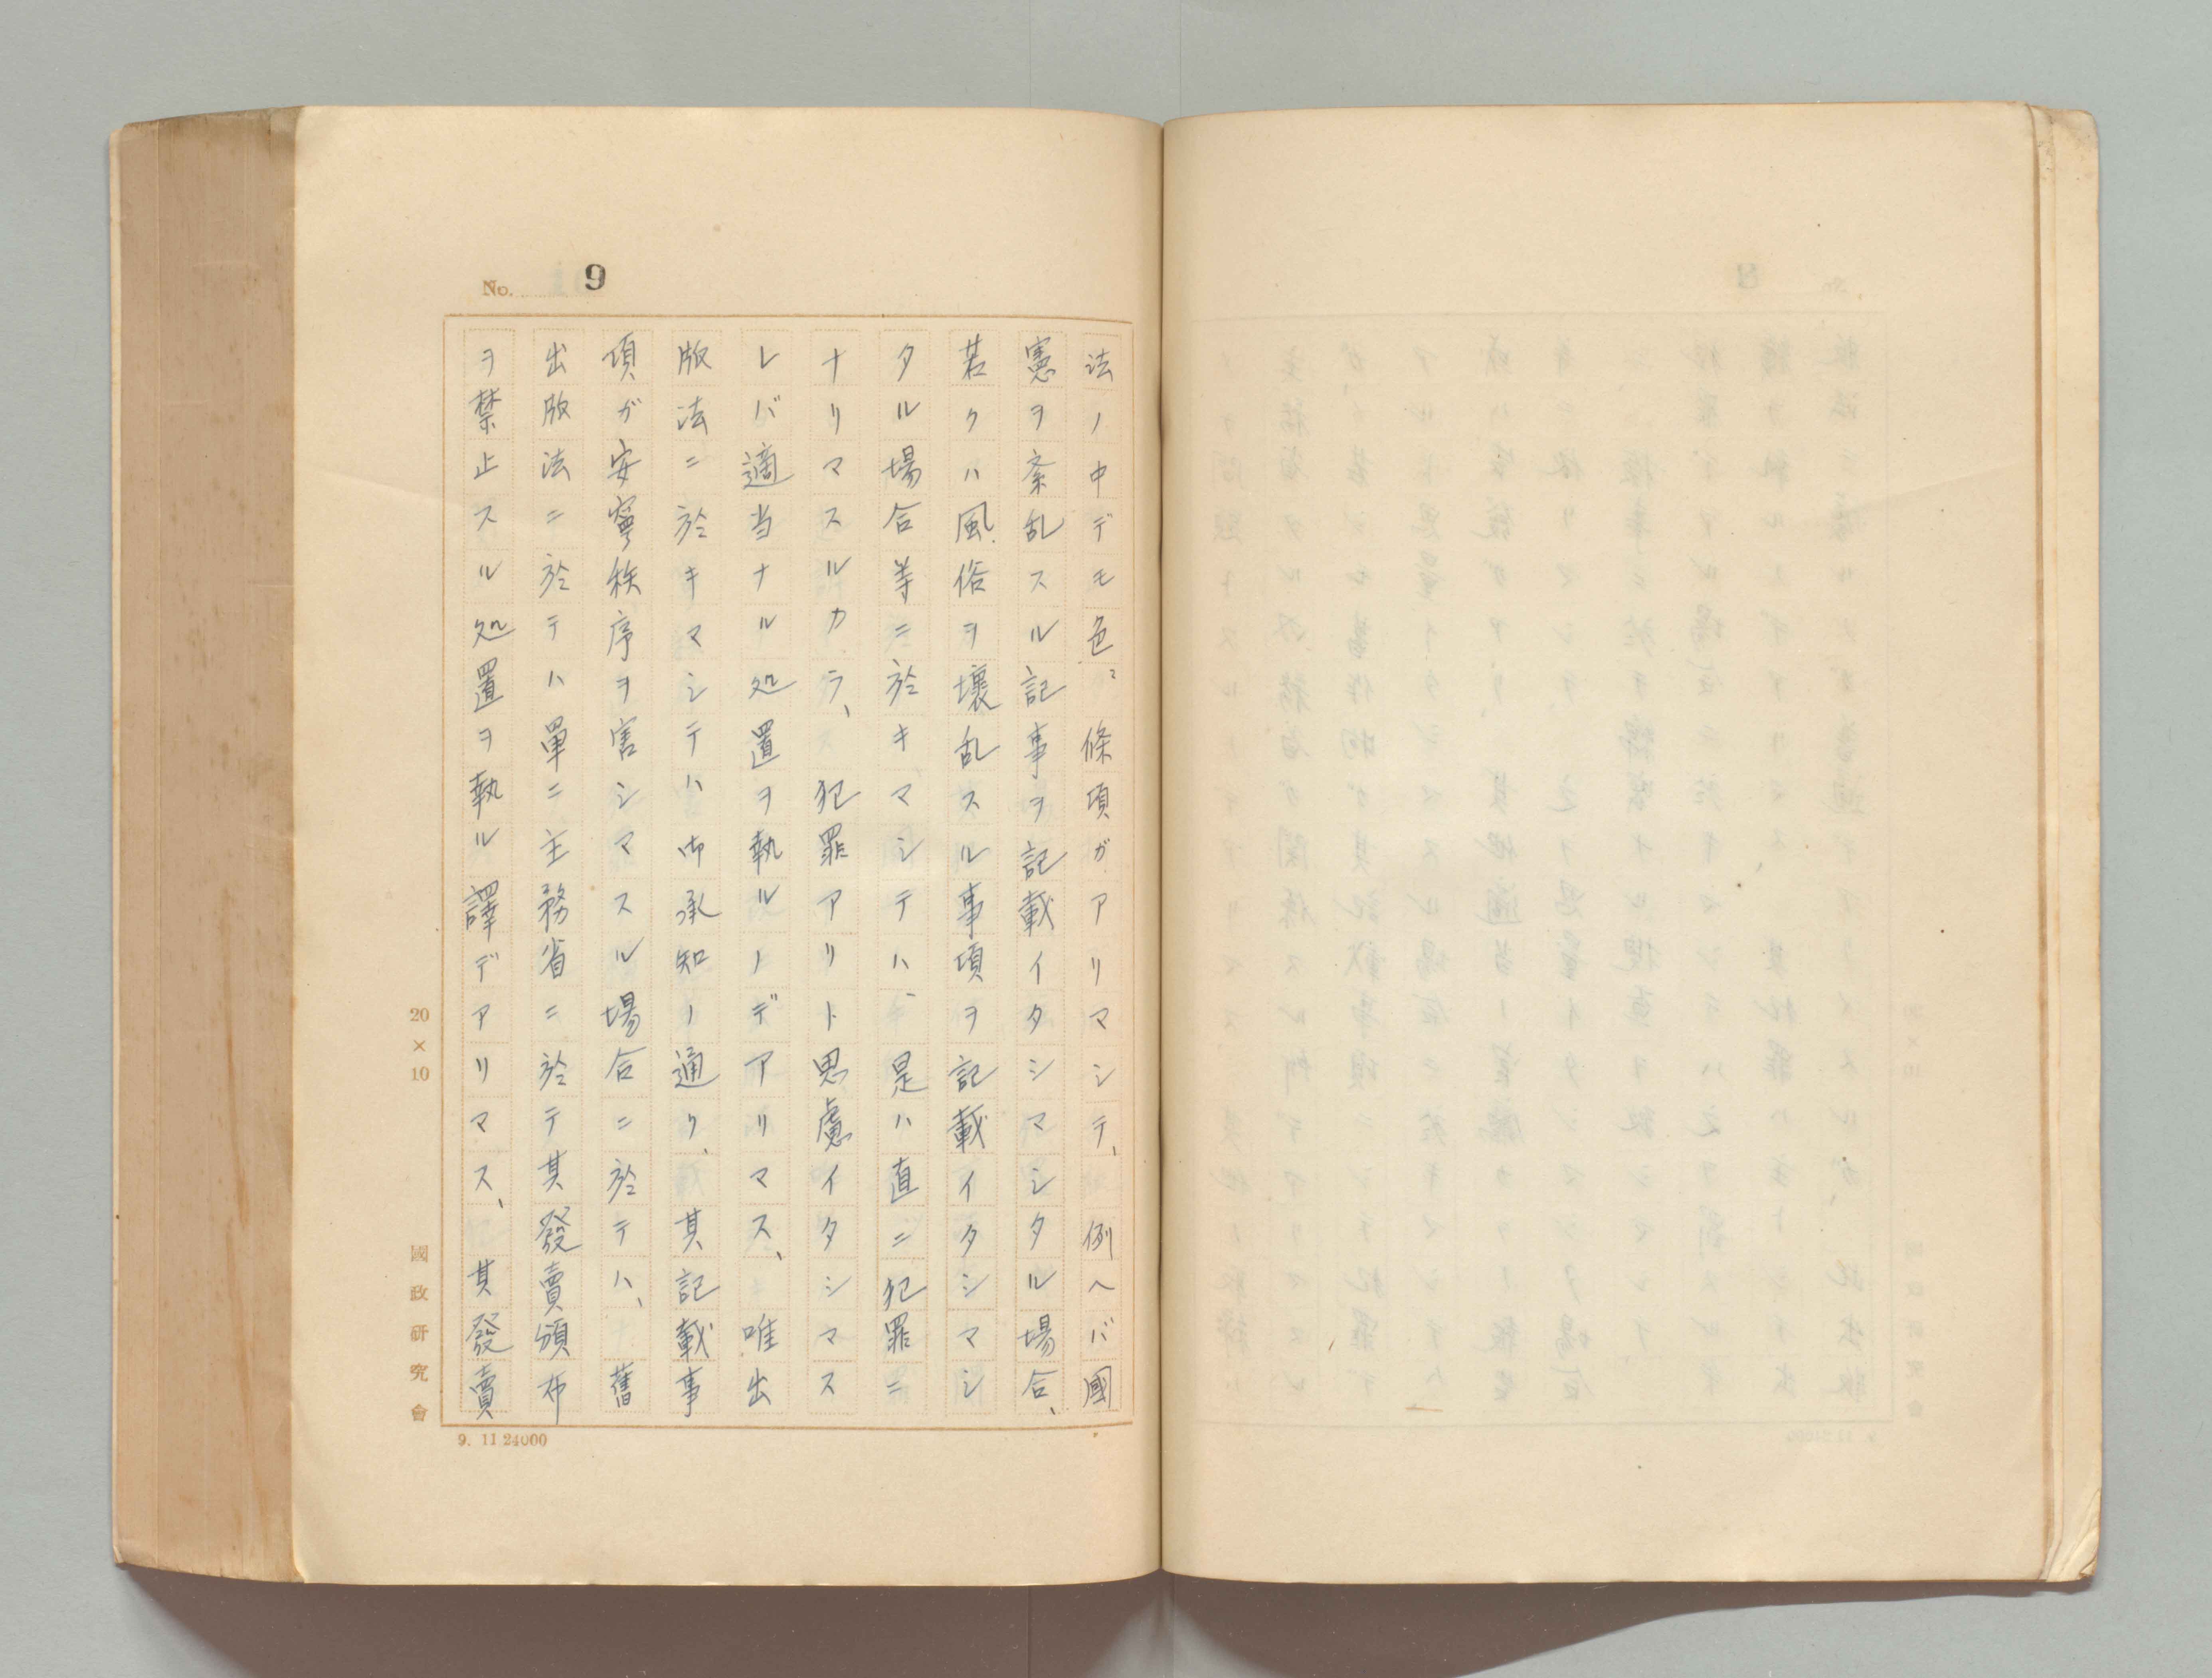 No. 9
法ノ中デモ色々條項ガアリマシテ、例ヘバ國
憲ヲ紊乱スル記事ヲ記載イタシマシタル場合、
若クハ風俗ヲ壞乱スル事項ヲ記載イタシマシ
タル場合等ニ於キマシテハ、是ハ直ニ犯罪ニ
ナリマスルカラ、犯罪アリト思慮イタシマス
レバ適当ナル処置ヲ執ルノデアリマス、唯出
版法ニ於キマシテハ御承知ノ通リ、其記載事
項ガ安寧秩序ヲ害シマスル場合ニ於テハ、舊
出版法ニ於テハ單ニ主務省ニ於テ其發賣頒布
ヲ禁止スル処置ヲ執ル譯デアリマス、其發賣
20×10
國政研究會
9. 11 24000